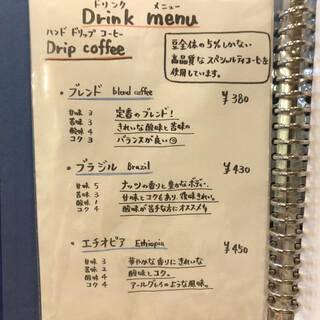 ドリンク メニュー
Drink menu
ハンド ドリップ コーヒー
Drip coffee
豆全体の5%しかない
高品質な スペシャルティコーヒーを
使用しています。
・ブレンド blend coffee ¥380
甘味 3
苦味 3
酸味 4
コク 3
定番のブレンド!
きれいな酸味と苦味の
バランスが良い☺
・ブラジル Brazil ¥430
甘味 5
苦味 3
酸味 1
コク 4
ナッツの香りと豊かなボディ。
甘味とコクもあり、後味きれい。
酸味が苦手な方にオススメ!
・エチオピア Ethiopia ¥450
甘味 3
苦味 2
酸味 4
コク 4
華やかな香りにきれいな
酸味とコク。
アールグレイのような風味。